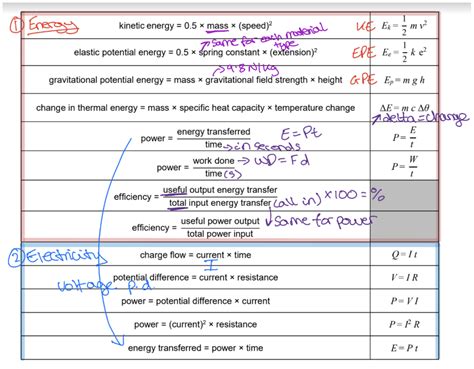 ① Energy
kinetic energy = 0.5 × mass × (speed)²
KE
E_k = 1/2 m v²
→ same for each material type
elastic potential energy = 0.5 × spring constant × (extension)²
EPE
E_e = 1/2 k e²
→ 9.8 N/kg
gravitational potential energy = mass × gravitational field strength × height
GPE
E_p = m g h
change in thermal energy = mass × specific heat capacity × temperature change
ΔE = m c Δθ
delta = change
power = energy transferred / time
E = Pt
→ in seconds
P = E / t
power = work done / time
→ WD = Fd
(s)
P = W / t
efficiency = useful output energy transfer / total input energy transfer
(all in) × 100 = %
efficiency = useful power output / total power input
↓ same for power
② Electricity
charge flow = current × time
Q = I t
I
voltage p.d.
potential difference = current × resistance
V = I R
power = potential difference × current
P = V I
power = (current)² × resistance
P = I² R
energy transferred = power × time
E = P t